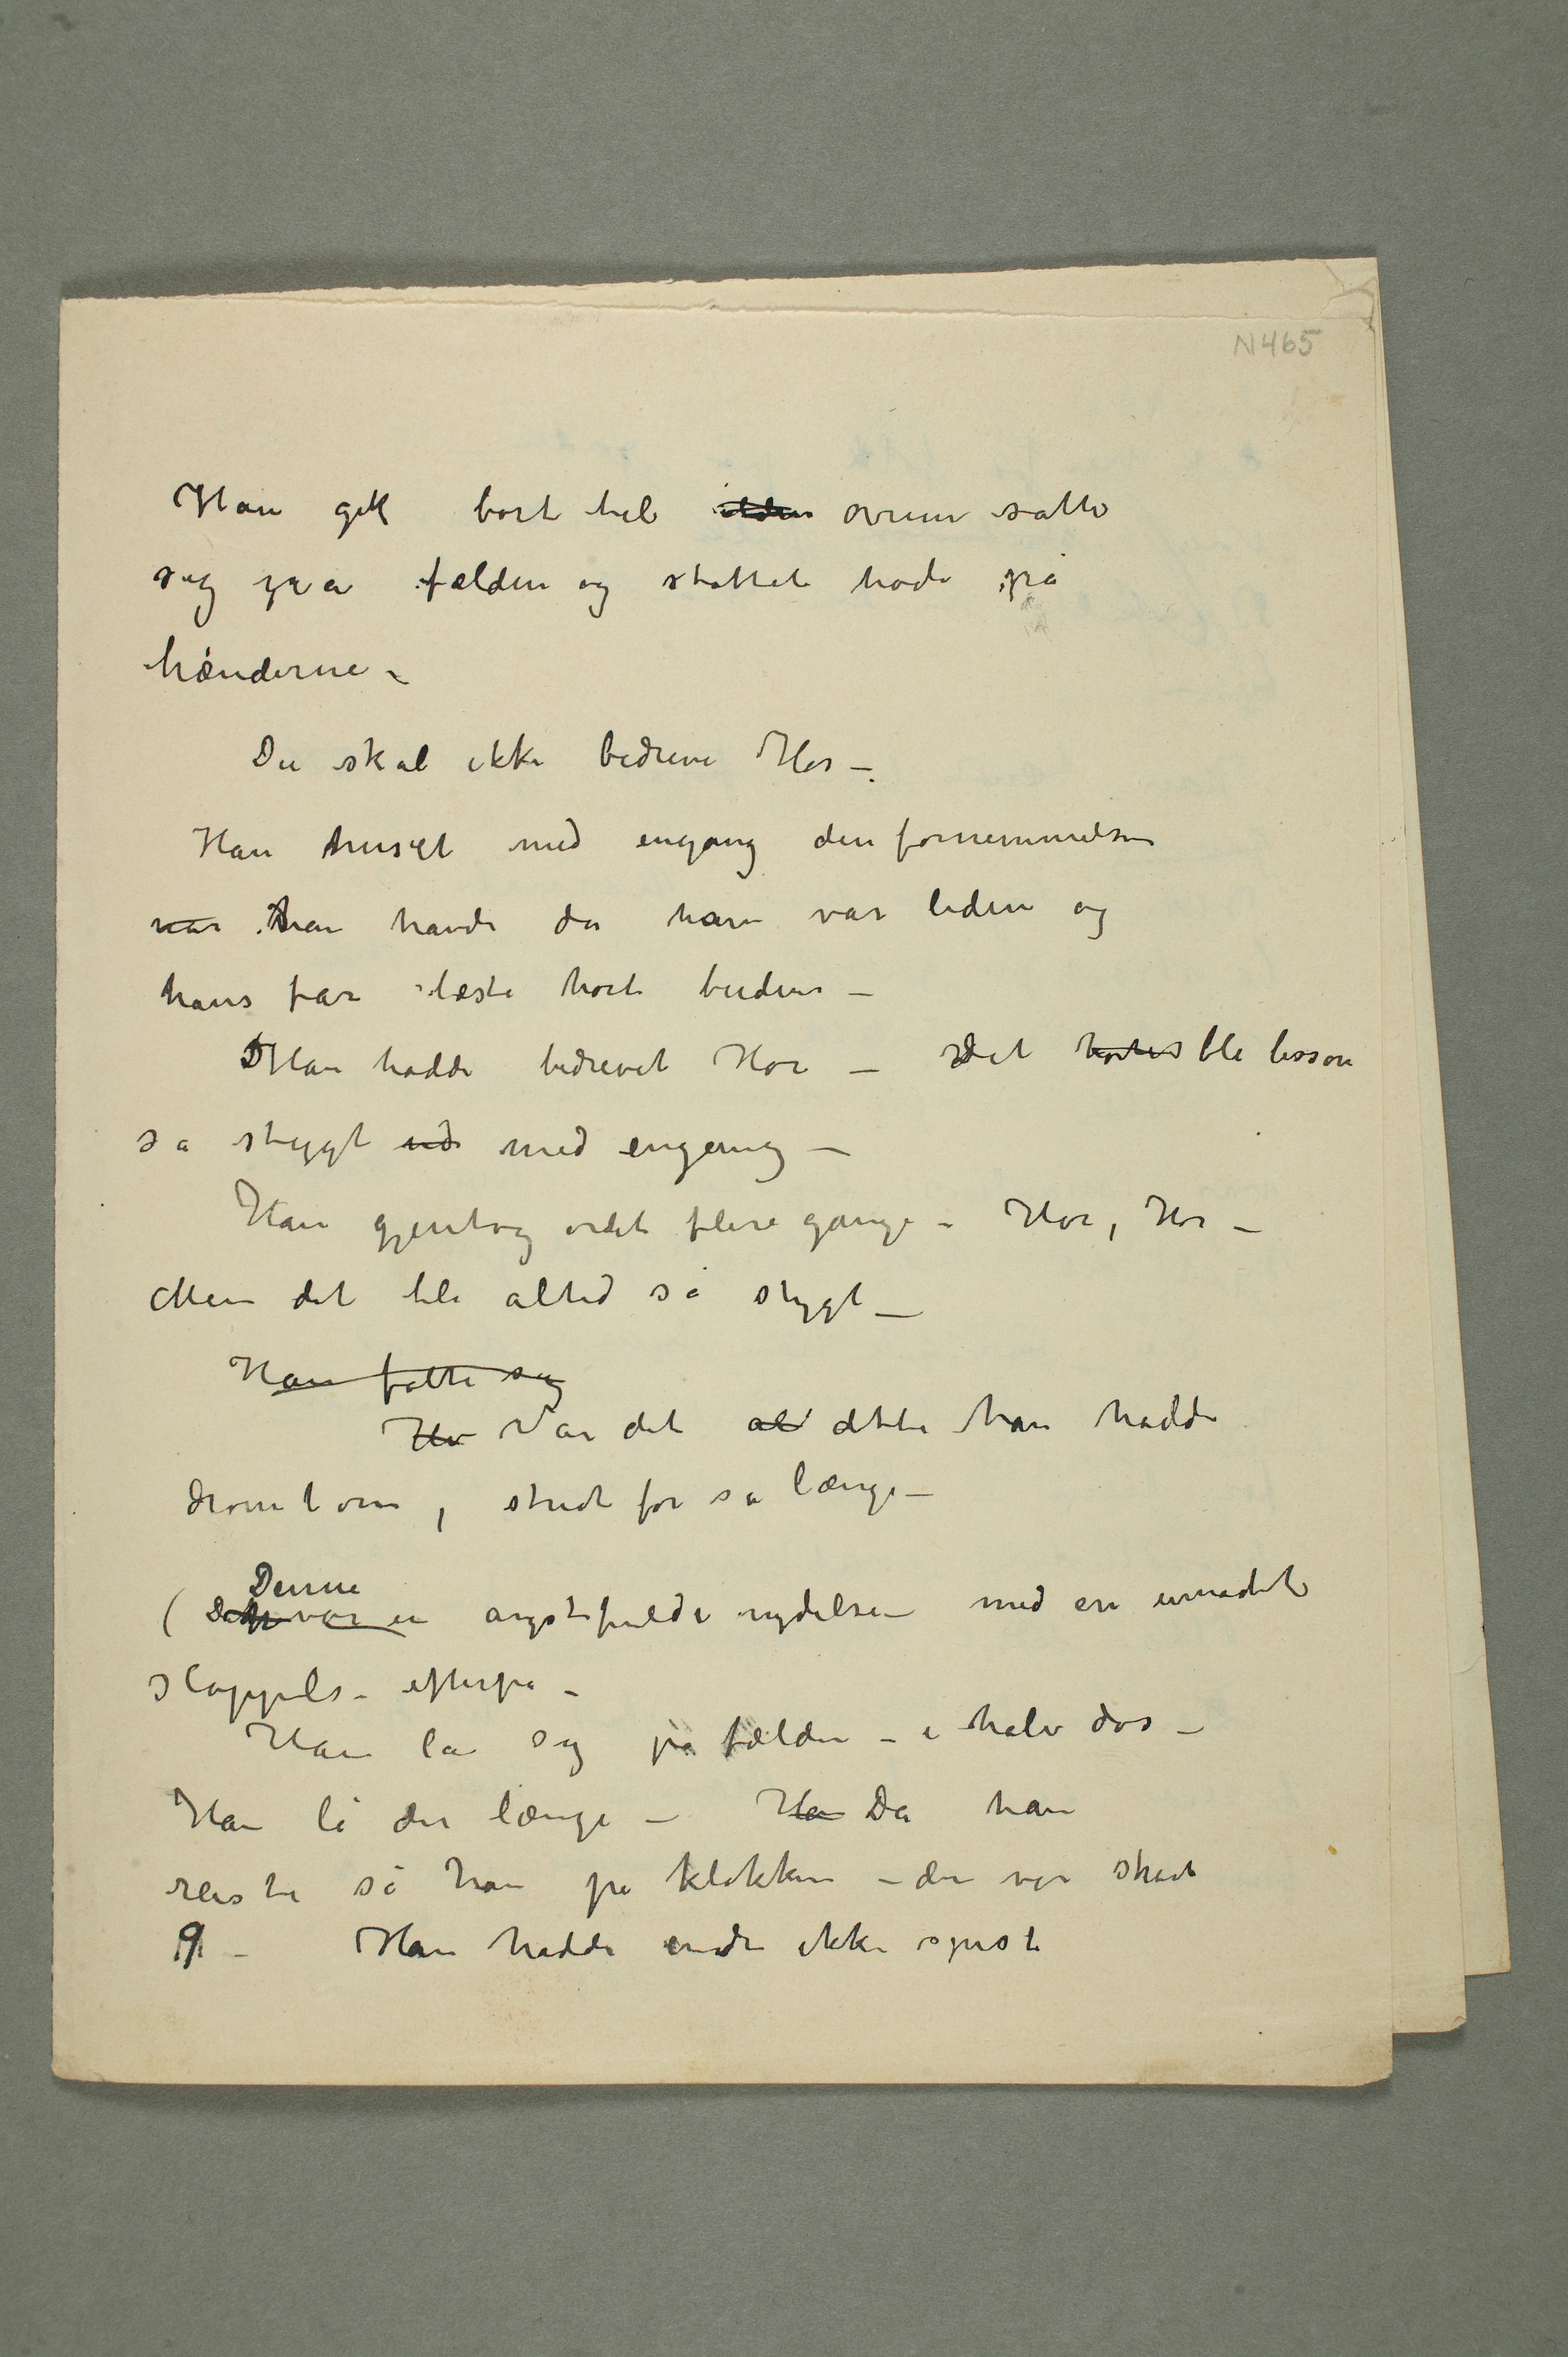 N465
Han gik bort til ilden ovnen satte
sig på fælden og støttet hode på
hænderne –
Du skal ikke bedrive Hor –
Han huset med engang den fornemmelsen
når han havde da han var liden og
hans far læste høit buden –
Han hadde bedrevet Hor – det hørtes ble lisson
så stygt ud med engang –
Han gjentog ordet flere gange – Hor, Hor –
Men det ble altid så stygt –
Han følte sig
Hv Var det al dette han hadde
drømt om, stridt for så længe –
Denne
( Det var en angstfulde nydelse – med en umådele
sløppels – efterpå –
Han la sig på fælden – i halv døs –
Han lå der længe – Ha Da han
reiste så han på klokken – den var straks
9 – Han hadde endu ikke spist